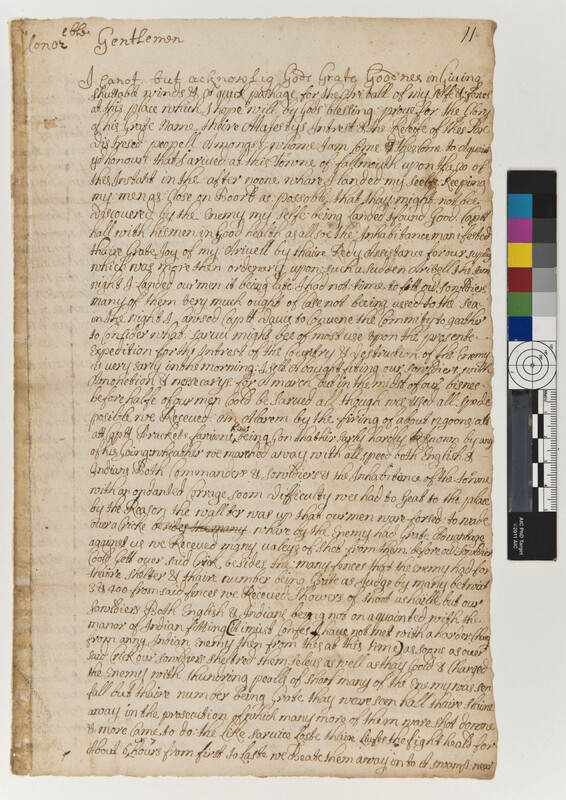 11
Honor^ble Gentlemen
I canot but acknowlig Gods Grate Goodnes in Giving
shuttable winds & so quick passage for the Arivall of my selfe & forces
at this place which I hope will by gods blessing prove for the Glory
of his Grate Name Their Majestys Intrest & the Releefe of thes Por
distresed peopell amongst whome I am come &
yo honours that I arived at this Towne of fallmouth upon the 20 of
this Instant in the after noone whare I landed my Selfe Keeping
my men as Close on Boord as possable that thay might not bee
discovered by the Enemy my selfe being landed I found Good Capt
hall with his men in Good health as allsoe the Inhabitance manifested
thaire Grate Joy of my arivell by thaire Redy asistance for our suply
which was more then ordenary upon such a sudden arivell the same
night I landed our men it being late I had not time to our sowldiers
many of them bery much ought of case not being used to the sea
in the night I caused Capt Davis to Convene the Commity to geather
to consider what sarvis might bee of most use upon the presente
Expedition for the Intrest of the Country & destruction of the Enemy
& very early in the morning I gott about fitting our sowldiers with
Amonetion & nesecarys for A march but in the midst of our bisnes
before halfe of our men Could be sarved all though we used all speede
posible we Receved An Alarem by the firing of about 12 goons att
att Capt Brackets farrom being Gon thather early hardly known by any
of his Going thather we marched away with all speed both English &
Indians Both Commanders & sowldiers & the Inhabitance of the Towne
with an ondanted Corrage soom difficulty we had to Geat to the place
by the Reason the watter was up that our men ware forsed to wade
over a Cricke whare by the Enemy had Grate advantage
against us we Receved many valleys of shot from them before our sowldiers
Could Gett over said Crick besides the many fences that the enemy had for
thaire shelter & thaire number being Grate as I Judge by many betwixt
3 & 400 from said fences we Receved showers of shoot as haille but our
sowldiers Both English & Indians being not on aquainted with the
manor of Indian fitting (I must Confes I have not met with a harder Charg
from anny Indian Enemy then from thes at this time) as soone as over
said Crick our sowldiers sheltred them selves as well as thay Could & Charged
the Enemy with thundring pearls of shoot many of the Enemy was seen
fall but thaire number being Grate thay ware seen hall thaire slaine
away in the prosecution of which many more of them ware shot downe
& more came to do the like sarvice loste thaire the fight heald for
About 6 hours from first to Laste we Beate them away in to A swamp near